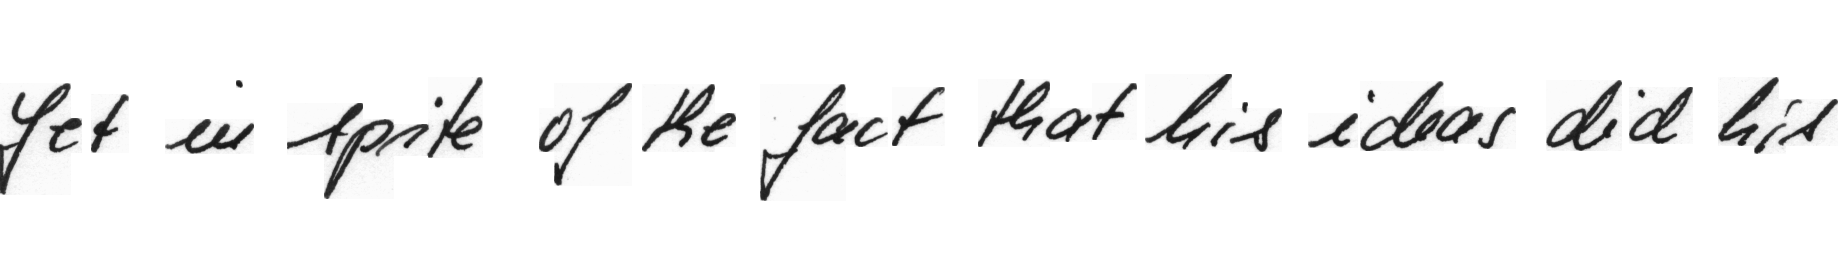 Yet in spite of the fact that his ideas did his